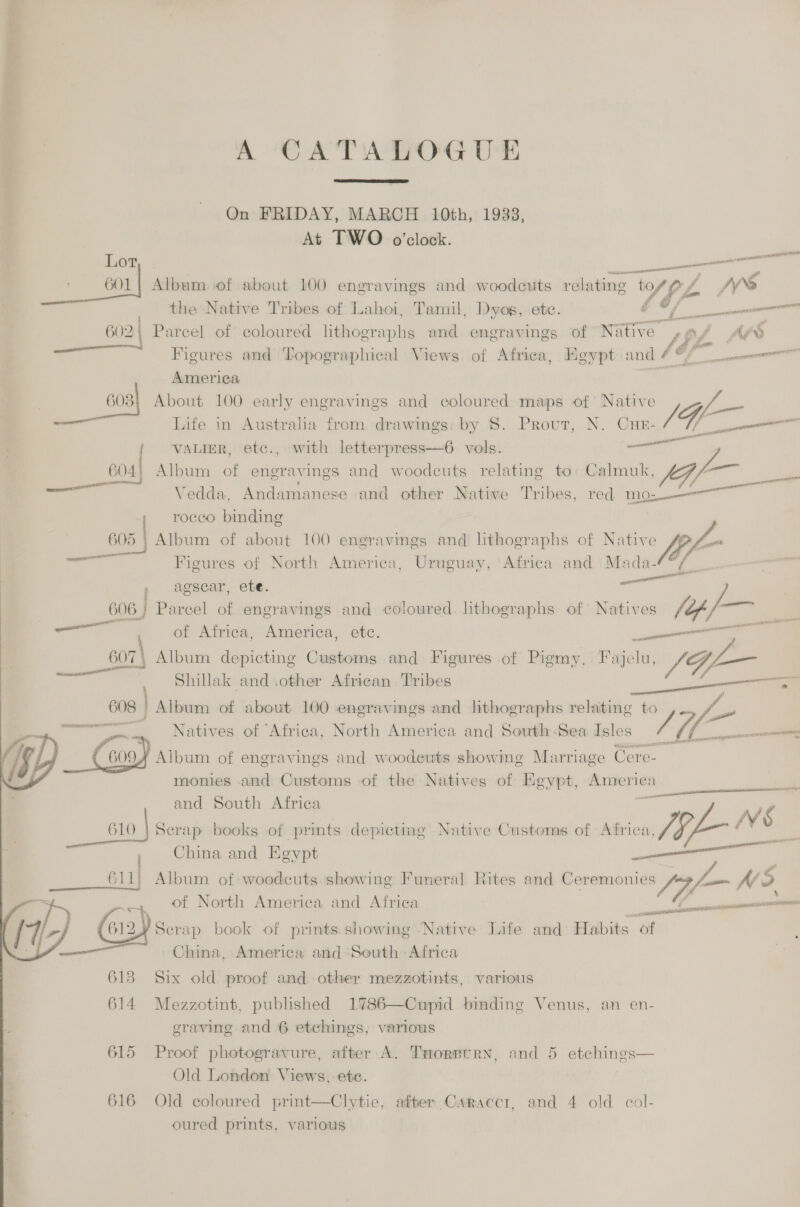 A CATALOGUE
On FRIDAY, MARCH 10th, 1933,
At TWO o'clock.
Lot
601 Album of about 100 engravings and woodcuts relating to NS
the Native Tribes of Lahoi, Tamil, Dyos, etc.
602 Parcel of coloured lithographs and engravings of Native NS
Figures and Topographical Views of Africa, Egypt and
America
603 About 100 early engravings and coloured maps of Native
Life in Australia from drawings by S. PROUT, N. CHE-
VALIER, etc., with letterpress—6 vols.
604 Album of engravings and woodcuts relating to Calmuk,
Vedda, Andamanese and other Native Tribes, red mo-
rocco binding
605 Album of about 100 engravings and lithographs of Native
Figures of North America, Uruguay, Africa and Mada-
agscar, etc.
606 Parcel of engravings and coloured lithographs of Natives
of Africa, America, etc.
607 Album depicting Customs and Figures of Pigmy, Fajelu,
Shillak and other African Tribes
608 Album of about 100 engravings and lithographs relating to
Natives of Africa, North America and South Sea Isles
609 Album of engravings and woodcuts showing Marriage Cere-
monies and Customs of the Natives of Egypt, America
and South Africa
610 Scrap books of prints depicting Native Customs of Africa, NS
China and Egypt
611 Album of woodcuts showing Funeral Rites and Ceremonies NS
of North America and Africa
612 Scrap book of prints showing Native Life and Habits of
China, America and South Africa
613 Six old proof and other mezzotints, various
614 Mezzotint, published 1786—Cupid binding Venus, an en-
graving and 6 etchings, various
615 Proof photogravure, after A. THORBURN, and 5 etchings—
Old London Views, etc.
616 Old coloured print—Clytie, after CARACCI, and 4 old col-
oured prints, various